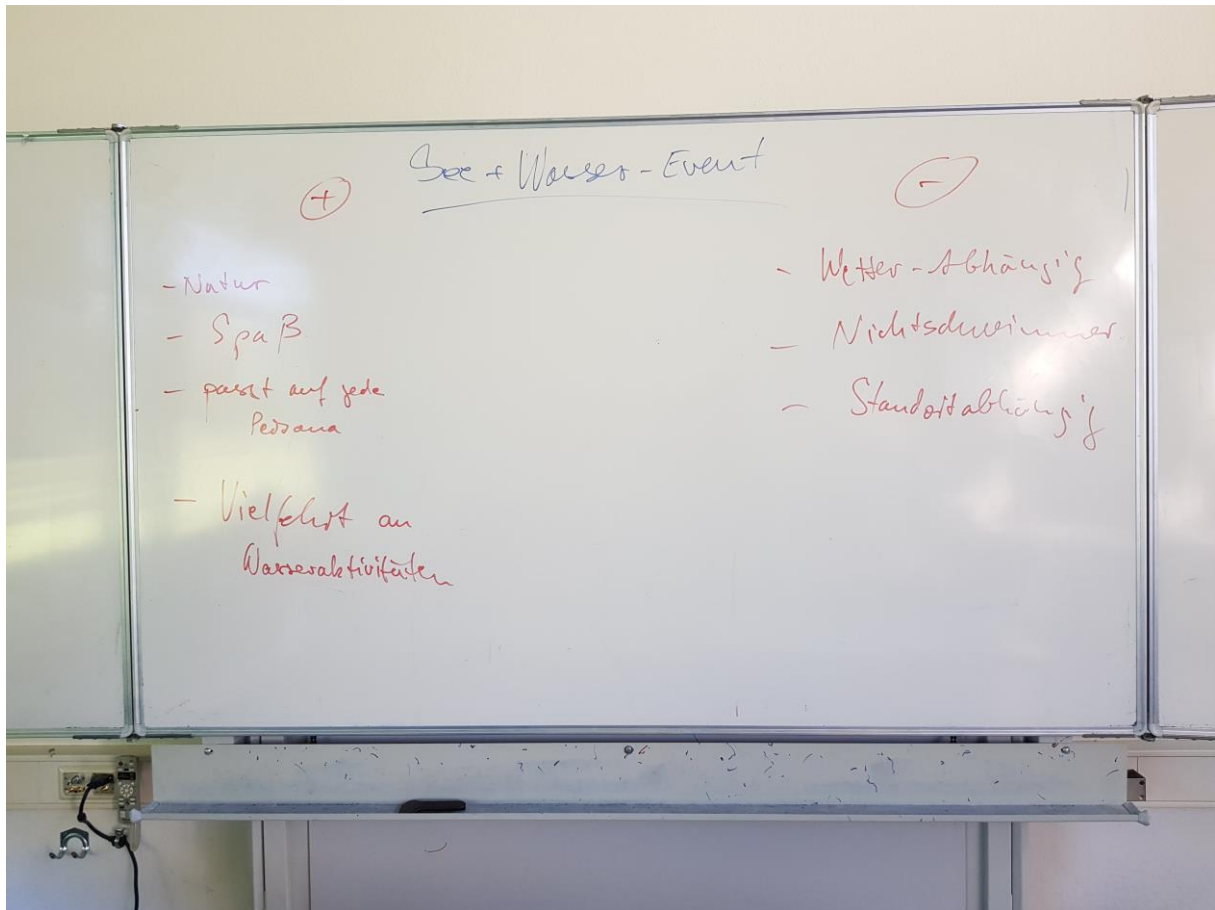 See + Wasser - Event
+
- Natur
- Spaß
- passt auf jede
Persona
- Vielfahrt an
Wasseraktivitäten
-
- Wetter-Abhängig
- Nichtschwimmer
- Standortabhängig